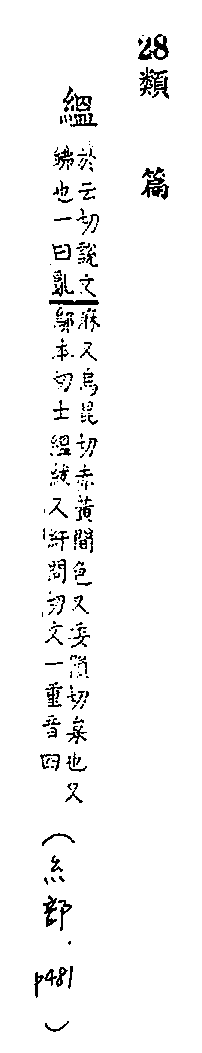 28類篇
縕
於云切說文
紼也一曰亂
麻又烏昆切赤黃間色又委隕切枲也又
鄔本切士縕紱又紆問切文一重音四
(糸部.p481)